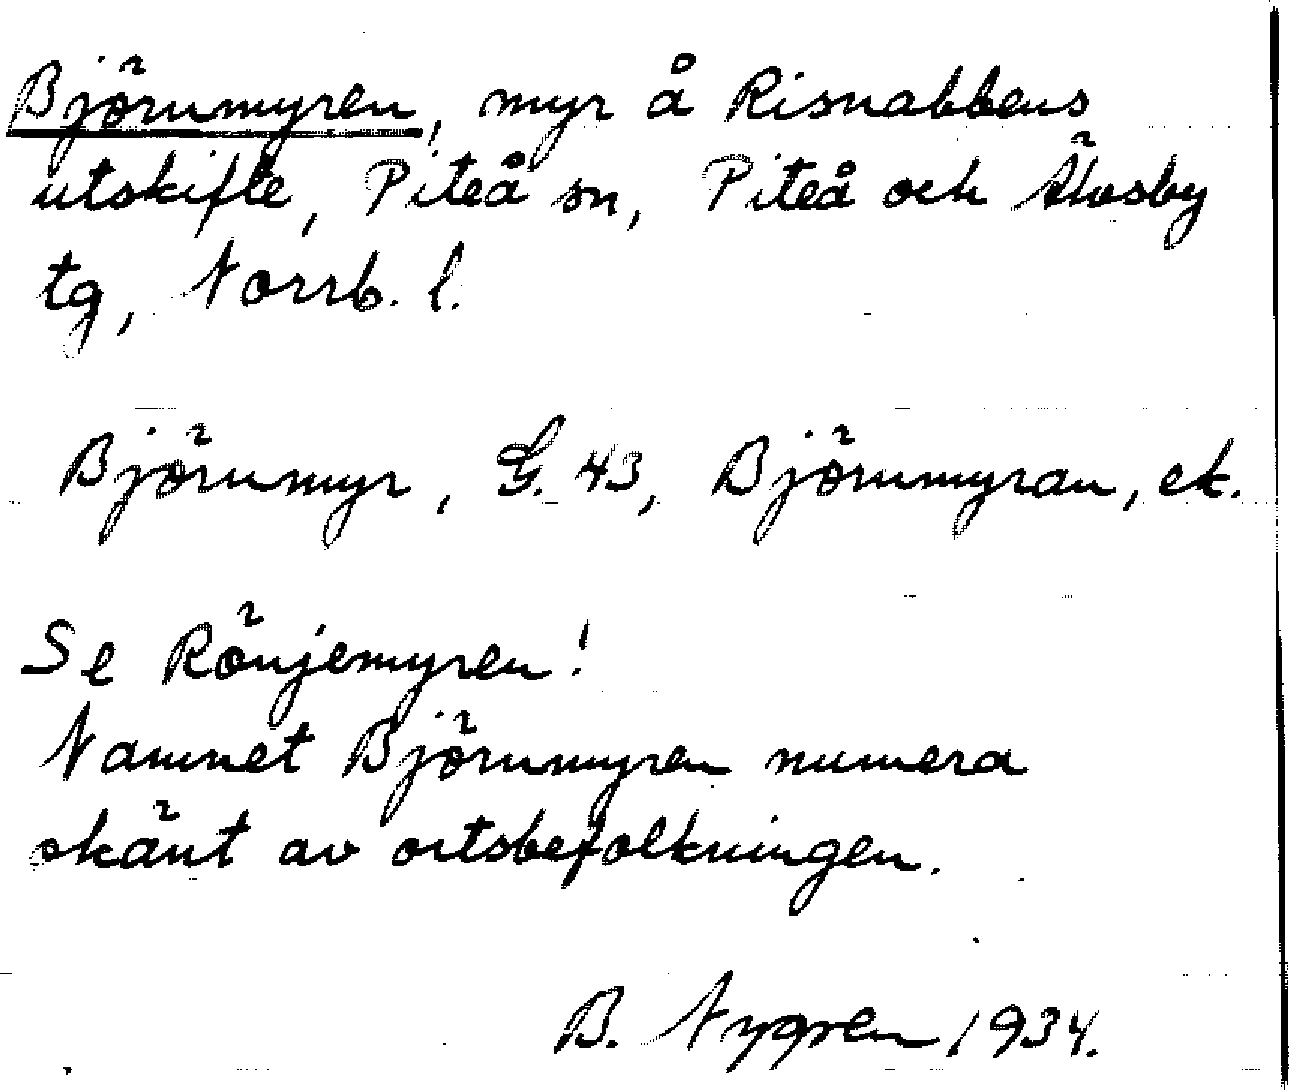 Björnmyren, myr å Risnabbens
utskifte, Piteå sn, Piteå och Älvsby
tg, Norrb. l.
Björnmyr, G. 43, Björnmyran, ek.
Se Rönjemyren!
Namnet Björnmyren numera
okänt av ortsbefolkningen.
B. Nygren 1934.